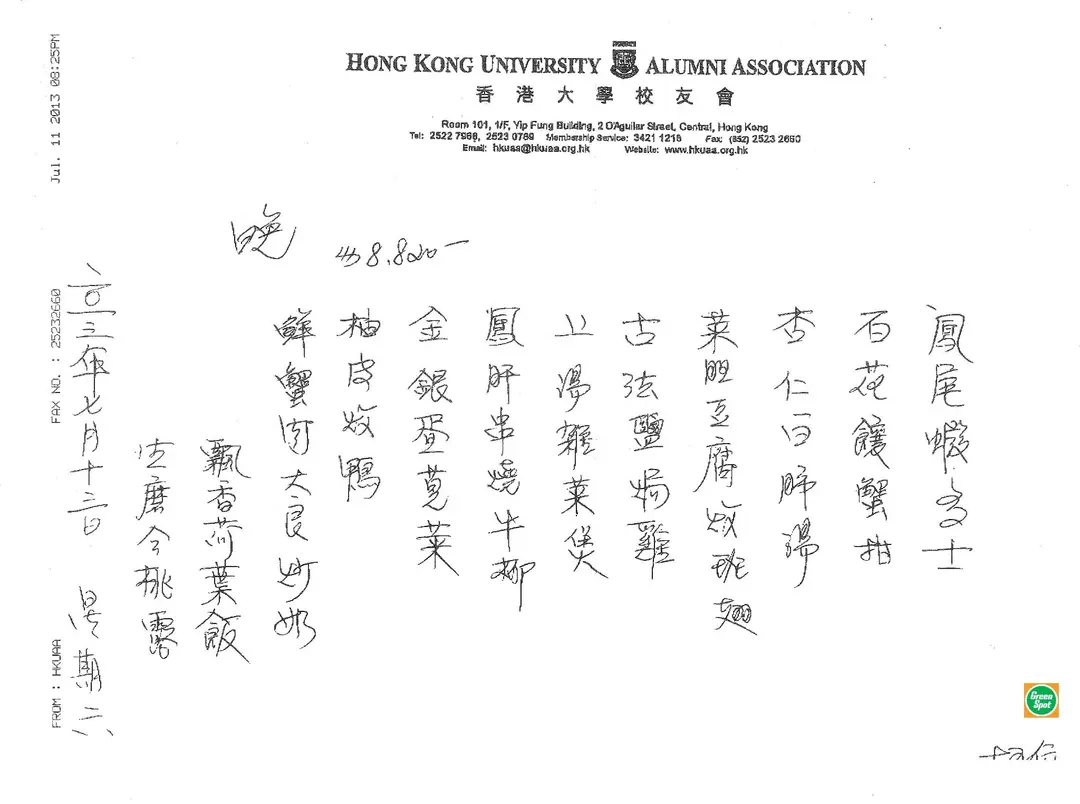 HONG KONG UNIVERSITY ALUMNI ASSOCIATION
香港大學校友會
Room 101, 1/F, Yip Fung Building, 2 D'Aguilar Street, Central, Hong Kong
Tel: 2522 7968, 2523 0769 Membership Service: 3421 1218 Fax: (852) 2523 2660
Email: hkuaa@hkuaa.org.hk Website: www.hkuaa.org.hk
Jul. 11 2013 08:25PM
FAX NO. : 25232660
FROM : HKUAA
晚
8,820
鳳尾蝦多士
百花釀蟹拑
杏仁白肺湯
菜胆豆腐炆班翅
古法鹽焗雞
上湯雜菜煲
鳳肝串燒牛柳
金銀蛋莧菜
柚皮炆鴨
鮮蟹肉大良炒奶
飄香荷葉飯
合桃露
二〇一三年七月十三日 星期六
Green Spot